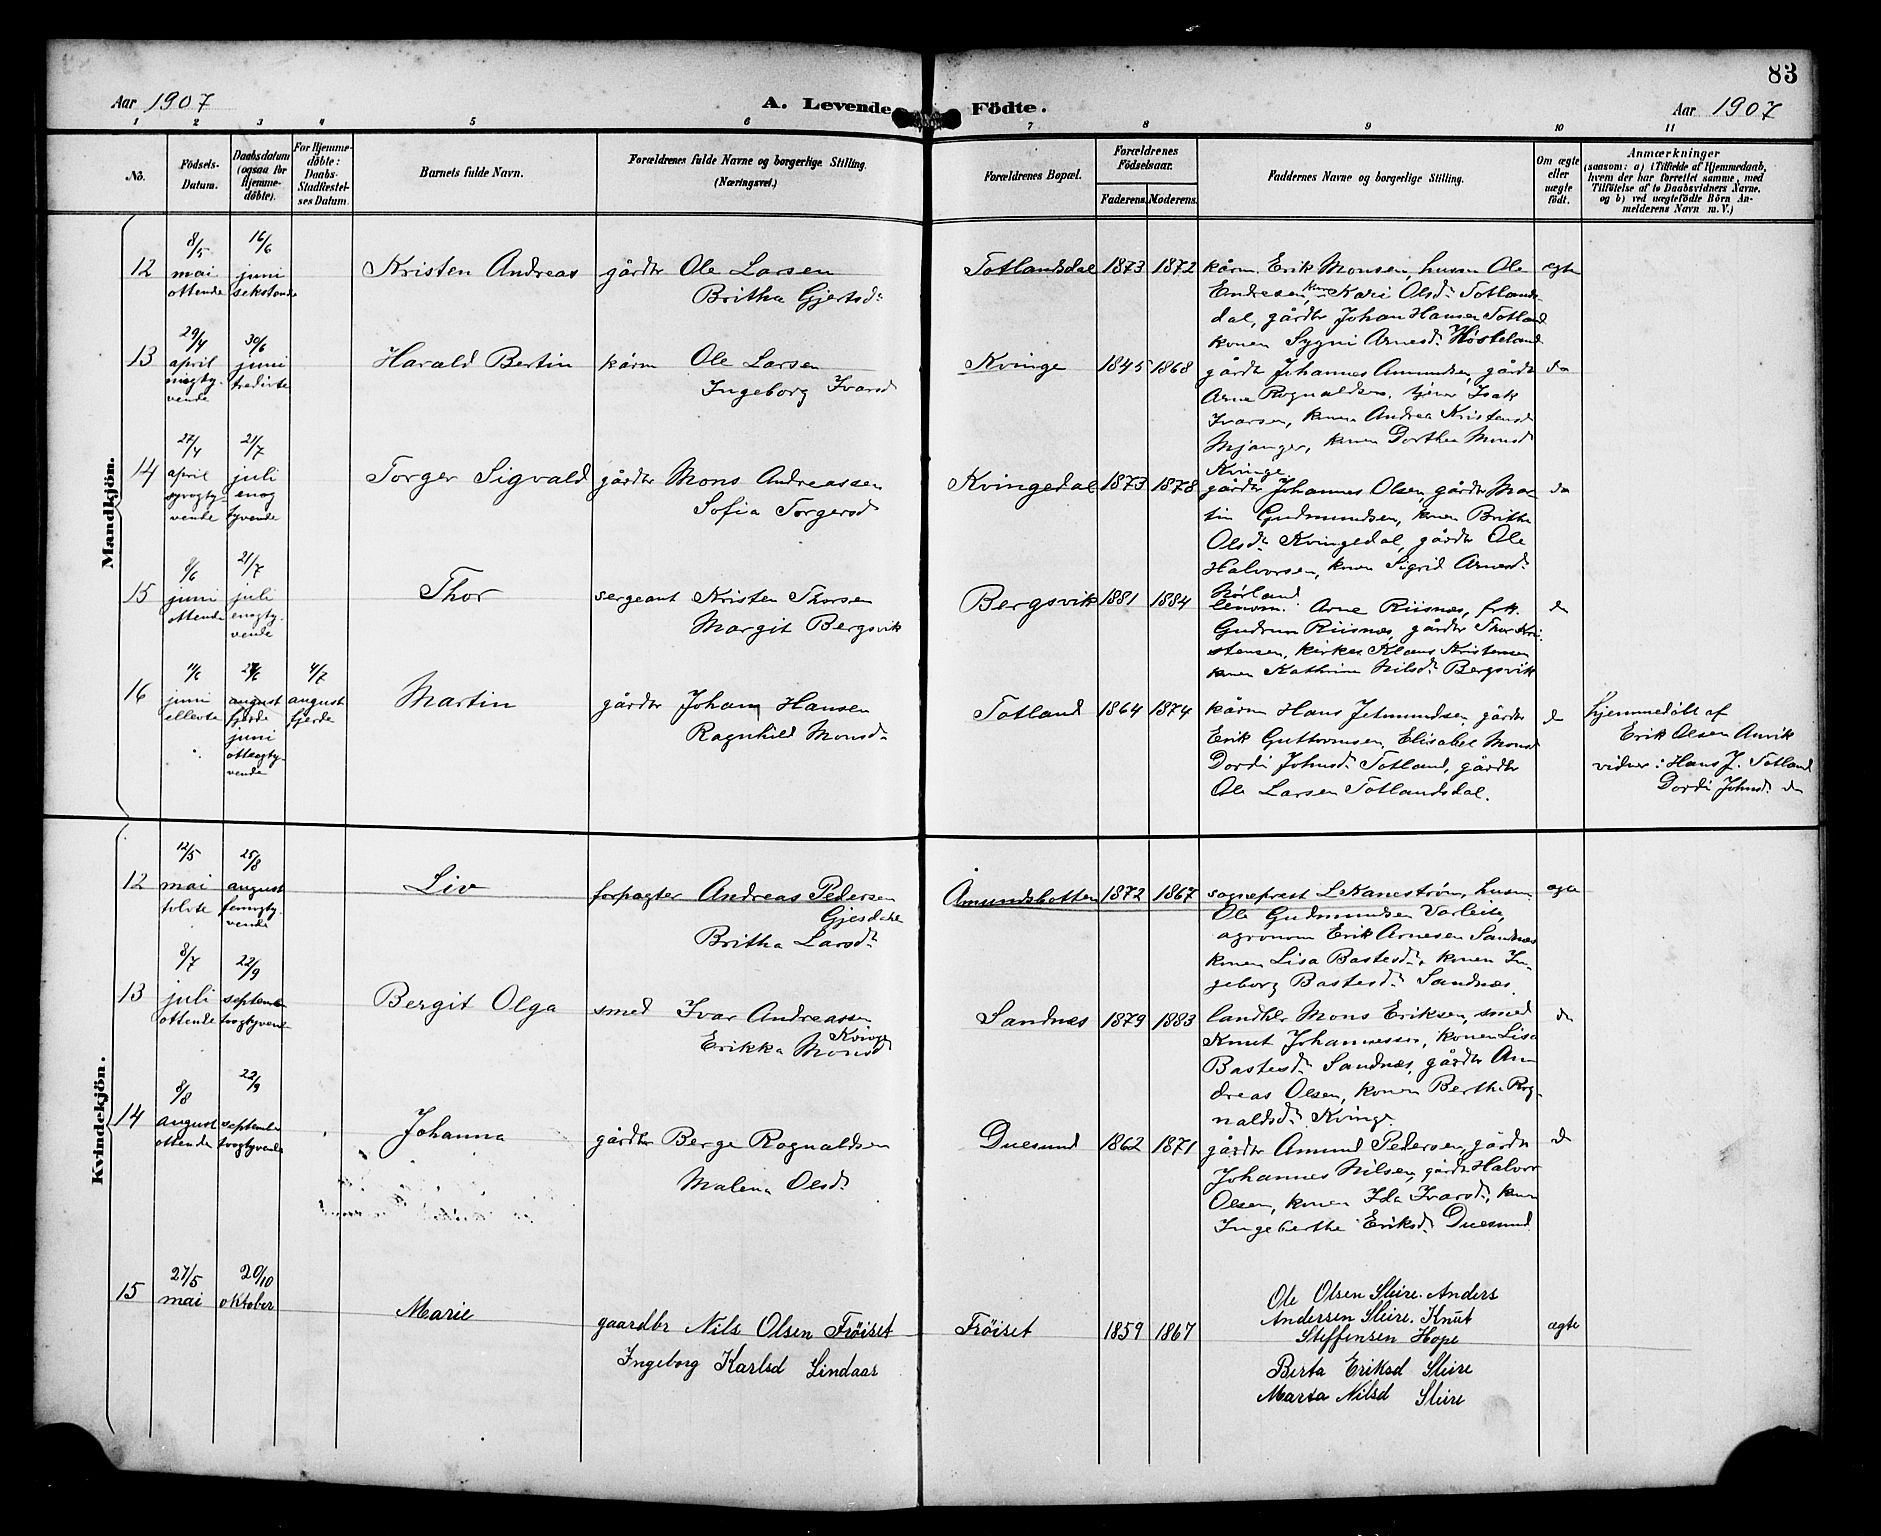 83
Aar 1907
A. Levende Födte.
Aar 1907
1 2 3 4 5 6 7 8 9 10 11
No.
Födsels-
Datum.
Daabsdatum
(ogsaa for
Hjemme-
döbte).
For Hjemme-
döbte:
Daabs-
Stadfæstel-
ses Datum.
Barnets fulde Navn.
Forældrenes fulde Navne og borgerlige Stilling.
(Næringsvei.)
Forældrenes Bopæl.
Forældrenes
Födselsaar.
Faderens. Moderens.
Faddernes Navne og borgerlige Stilling.
Om ægte
eller
uægte
födt.
Anmærkninger
(saasom: a) i Tilfælde af Hjemmedaab,
hvem der har forrettet samme, med
Tilföielse af to Daabsvidners Navne.
og b) ved uægtefödte Börn An-
melderens Navn m. V.)
Mandkjön.
12
8/5
mai
ottende
16/6
juni
sekstende
Kristen Andreas
gårdbr Ole Larsen
Britha Gjertsd.
Totlandsdal
1873
1872
kårm. Erik Monsen, husm Ole
Endresen, Kari Olsd. Totlands-
dal, gårdbr Johan Hansen Totland
konen Sygni Arnesd. Hosteland
ægte
13
29/4
april
niogty-
vende
30/6
juni
tredivte
Harald Bertin
kårm Ole Larsen
Ingeborg Ivarsd
Kvinge
1845
1868
gårdb Johannes Amundsen, gårdb
Arne Rognaldsen, tjener Isak
Ivarsen, konen Andrea Kristensd
Mjanger, konen Dorthea Monsd
Kvinge.
do
14
27/4
april
syvogty-
vende
21/7
juli
enog
tyvende
Torger Sigvald
gårdbr Mons Andreassen
Sofia Torgersd
Kvingedal
1873
1878
gårdbr Johannes Olsen, gårdbr Mar
tin Gudmundsen, konen Britha
Olsd. Kvingedal, gårdbr Ole
Halvorsen, konen Sigrid Arnesd.
do
15
8/6
juni
ottende
21/7
juli
enogty-
vende
Thor
sergeant Kristen Thorsen
Margit Bergsvik
Bergsvik
1881
1884
Arne Riisnæs, frk.
Gudrun Riisnæs, gårdbr Thor Kri-
stensen, kirkes Klaus Kristensen
konen Kathrine Nilsd. Bergsvik
16
11/6
juni
ellevte
august
fjerde
juni
otteogty-
vende
4/7
august
fjerde
Martin
gårdbr Johan Hansen
Ragnhild Monsd.
Totland
1864
1874
kårm Hans Jetmundsen, gårdbr
Erik Guttormsen, Elisabet Monsd
Dordi Johnsd. Totland, gårdbr
Ole Larsen Totlandsdal.
hjemmedöbt af
Erik Olsen Anvik
vidner: Hans J. Totland
Dordi Johnsd. do
Kvindekjön.
12
12/5
mai
tolvte
25/8
august
femogty-
vende
Liv
forpagter Andreas Pedersen
Gjesdahl
Britha Larsd.
Åmundsbotten
1872
1867
sogneprest L Kanestrøm, husm
Ole Gudmundsen Varleite,
agronom Erik Arnesen Sandnæs
konen Lisa Bastesd., konen In-
geborg Bastesd. Sandnæs.
ægte
13
8/7
juli
ottende
22/9
september
toogtyvende
Bergit Olga
smed Ivar Andreassen
Kvinge
Erikka Monsd
Sandnæs
1879
1883
landhdlr Mons Eriksen, smed
Knut Johannessen, konen Lisa
Bastesd. Sandnæs, gårdbr An
dreas Olsen, konen Berthe Rog-
naldsd. Kvinge
do
14
8/8
august
ottende
22/9
september
toogtyvende
Johanna
gårdbr Berge Rognaldsen
Malena Olsd.
Duesund
1862
1871
gårdbr Amund Pedersen, gårdbr
Johannes Nilsen, gårdbr Halvor
Olsen, konen Ida Ivarsd., konen
Ingeberthe Eriksd. Duesund
15
27/5
mai
20/10
oktober
Marie
gaardbr Nils Olsen Fröiset
Ingeborg Karlsd Lindaas
Fröiset
1859
1867
Ole Olsen Sleire. Anders
Andersen Sleire. Knut
Steffensen Hope
Berta Eriksd Sleire
Marta Nilsd Sleire
ægte